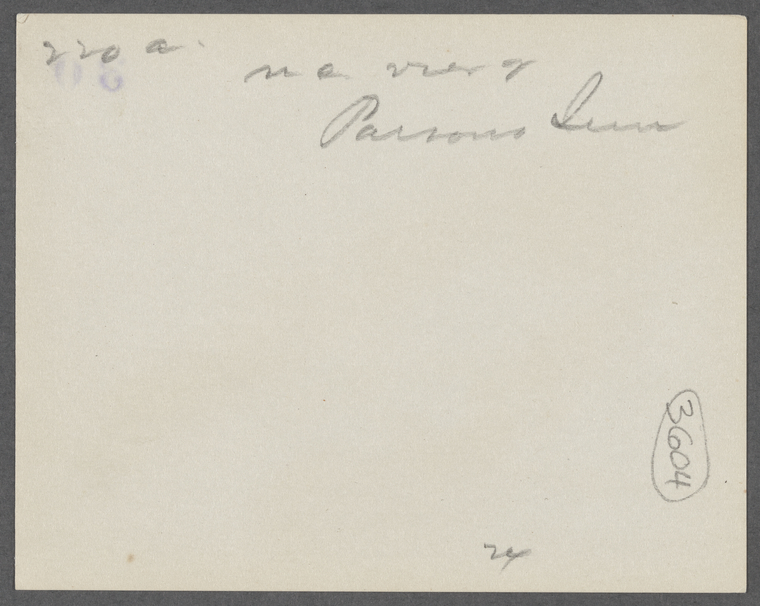 220 a.
n e view of
Parsons Inn
3604
24